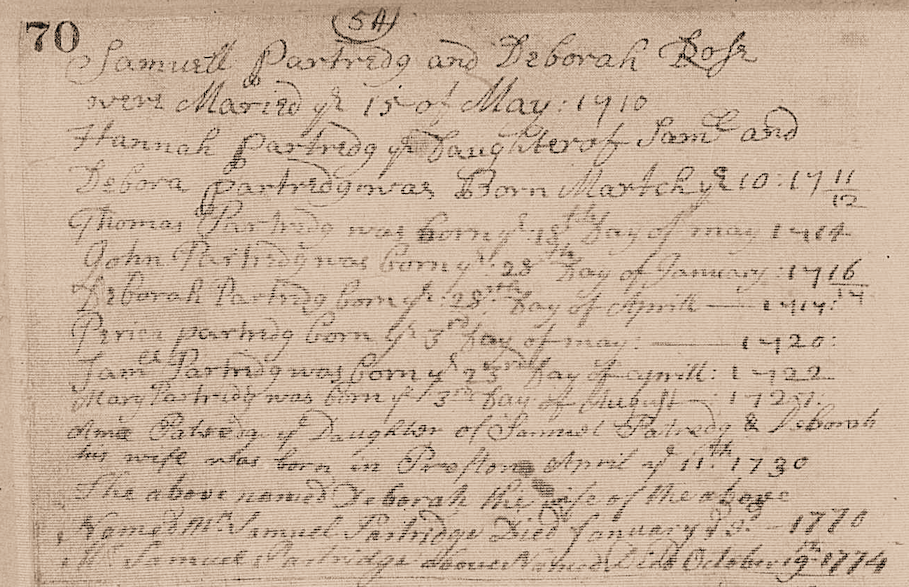 70
(54)
Samuell Partredg and Deborah Rose
were Maried ye 15 of May: 1710
Hannah partredg ye Daughter of Saml and
Debora partredg was Born Martch ye 10: 17 11/12
Thomas Partredg was born ye 18th Day of may 1714
John Partredg was born ye 28th Day of January: 17 16/17
Deborah Partredg born ye: 28th Day of Aprill
partredg born ye 3rd Day of may: 1720:
Samll Partredg was born ye 23rd Day of : 1722
Mary Partredg was born ye 3rd Day of August
Patredg ye Daughter of Samuel Patredg & Deborah
his wife was born in Preston April ye 11th 1730
The above named Deborah the wife of the above
Named Mr Samuel Partridge Died January 1770
Mr Samuel Partridge above Named Died October 9th 1774